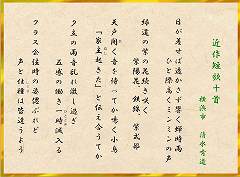 近作短歌十首
横浜市 清水秀道
日が差せば透かさず響く蝉時雨
ひと際高くミンミンの声
緑道の紫の花続き咲く
紫陽花 鉄線 紫式部
天戸開く音を待ってか鳴く小鳥
「家主起きた」と伝え合うてか
夕立の雨音乱れ激し過ぎ
五感の働き一時滅入る
クラス会往時の姿偲ぶれど
声と仕種は皆違うよう